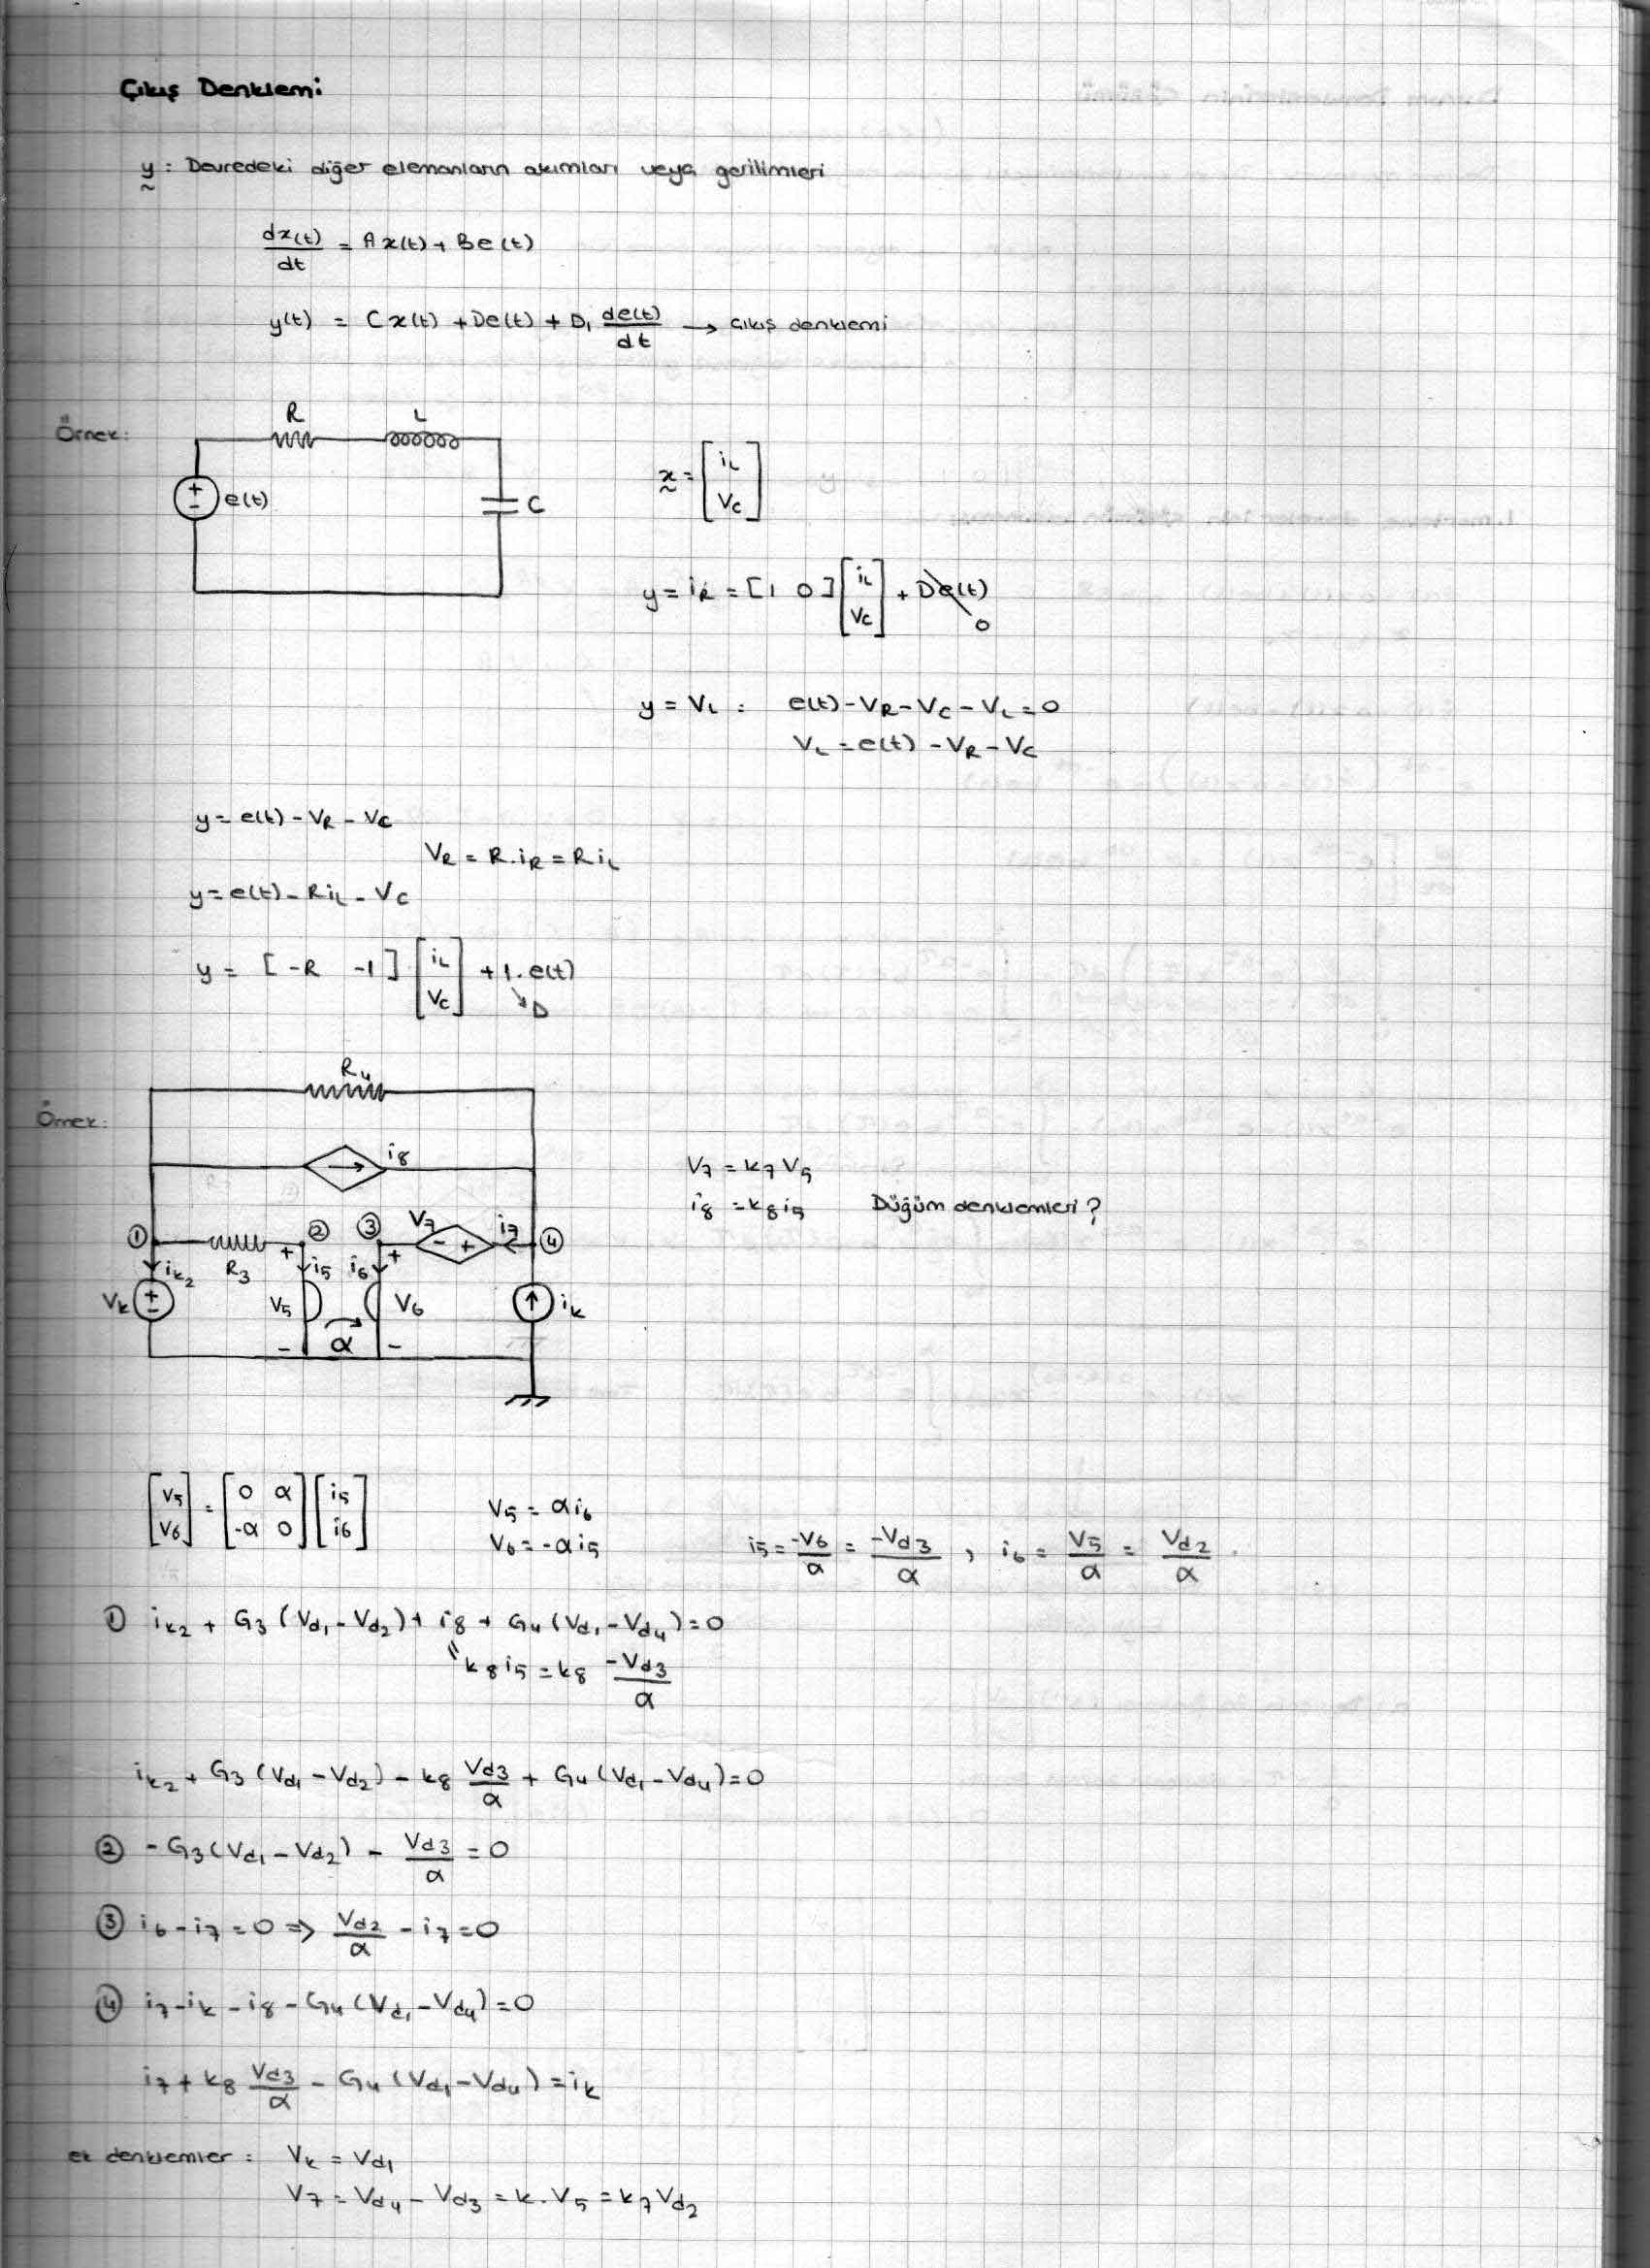 Çıkış Denklemi
y : Devredeki diğer elemanların akımları veya gerilimleri
dx(t)/dt = Ax(t) + Be(t)
y(t) = Cx(t) + De(t) + D₁ de(t)/dt → çıkış denklemi
Örnek:
R L
e(t) C
x = [iL Vc]
y = iR = [1 0] [iL Vc] + De(t) 0
y = VL : e(t) - VR - VC - VL = 0
VL = e(t) - VR - VC
y = e(t) - VR - VC
VR = R.iR = RiL
y = e(t) - RiL - VC
y = [-R -1] [iL Vc] + 1.e(t)
↘D
Örnek:
R4
i8
V7 = k7 V5
i8 = k8 i5 Düğüm denklemleri?
① ② ③ V7 i7 ④
ik2 R3 + i5 i6 +
Vk V5 V6 ik
- α -
[V5 V6] = [0 α; -α 0] [i5 i6]
V5 = αi6
V6 = -αi5
i5 = -V6/α = -Vd3/α , i6 = V5/α = Vd2/α
① ik2 + G3(Vd1 - Vd2) + i8 + G4(Vd1 - Vd4) = 0
" k8i5 = k8 -Vd3/α
ik2 + G3(Vd1 - Vd2) - k8 Vd3/α + G4(Vd1 - Vd4) = 0
② -G3(Vd1 - Vd2) - Vd3/α = 0
③ i6 - i7 = 0 ⇒ Vd2/α - i7 = 0
④ i7 - ik - i8 - G4(Vd1 - Vd4) = 0
i7 + k8 Vd3/α - G4(Vd1 - Vd4) = ik
ek denklemler : Vk = Vd1
V7 = Vd4 - Vd3 = k.V5 = k7Vd2